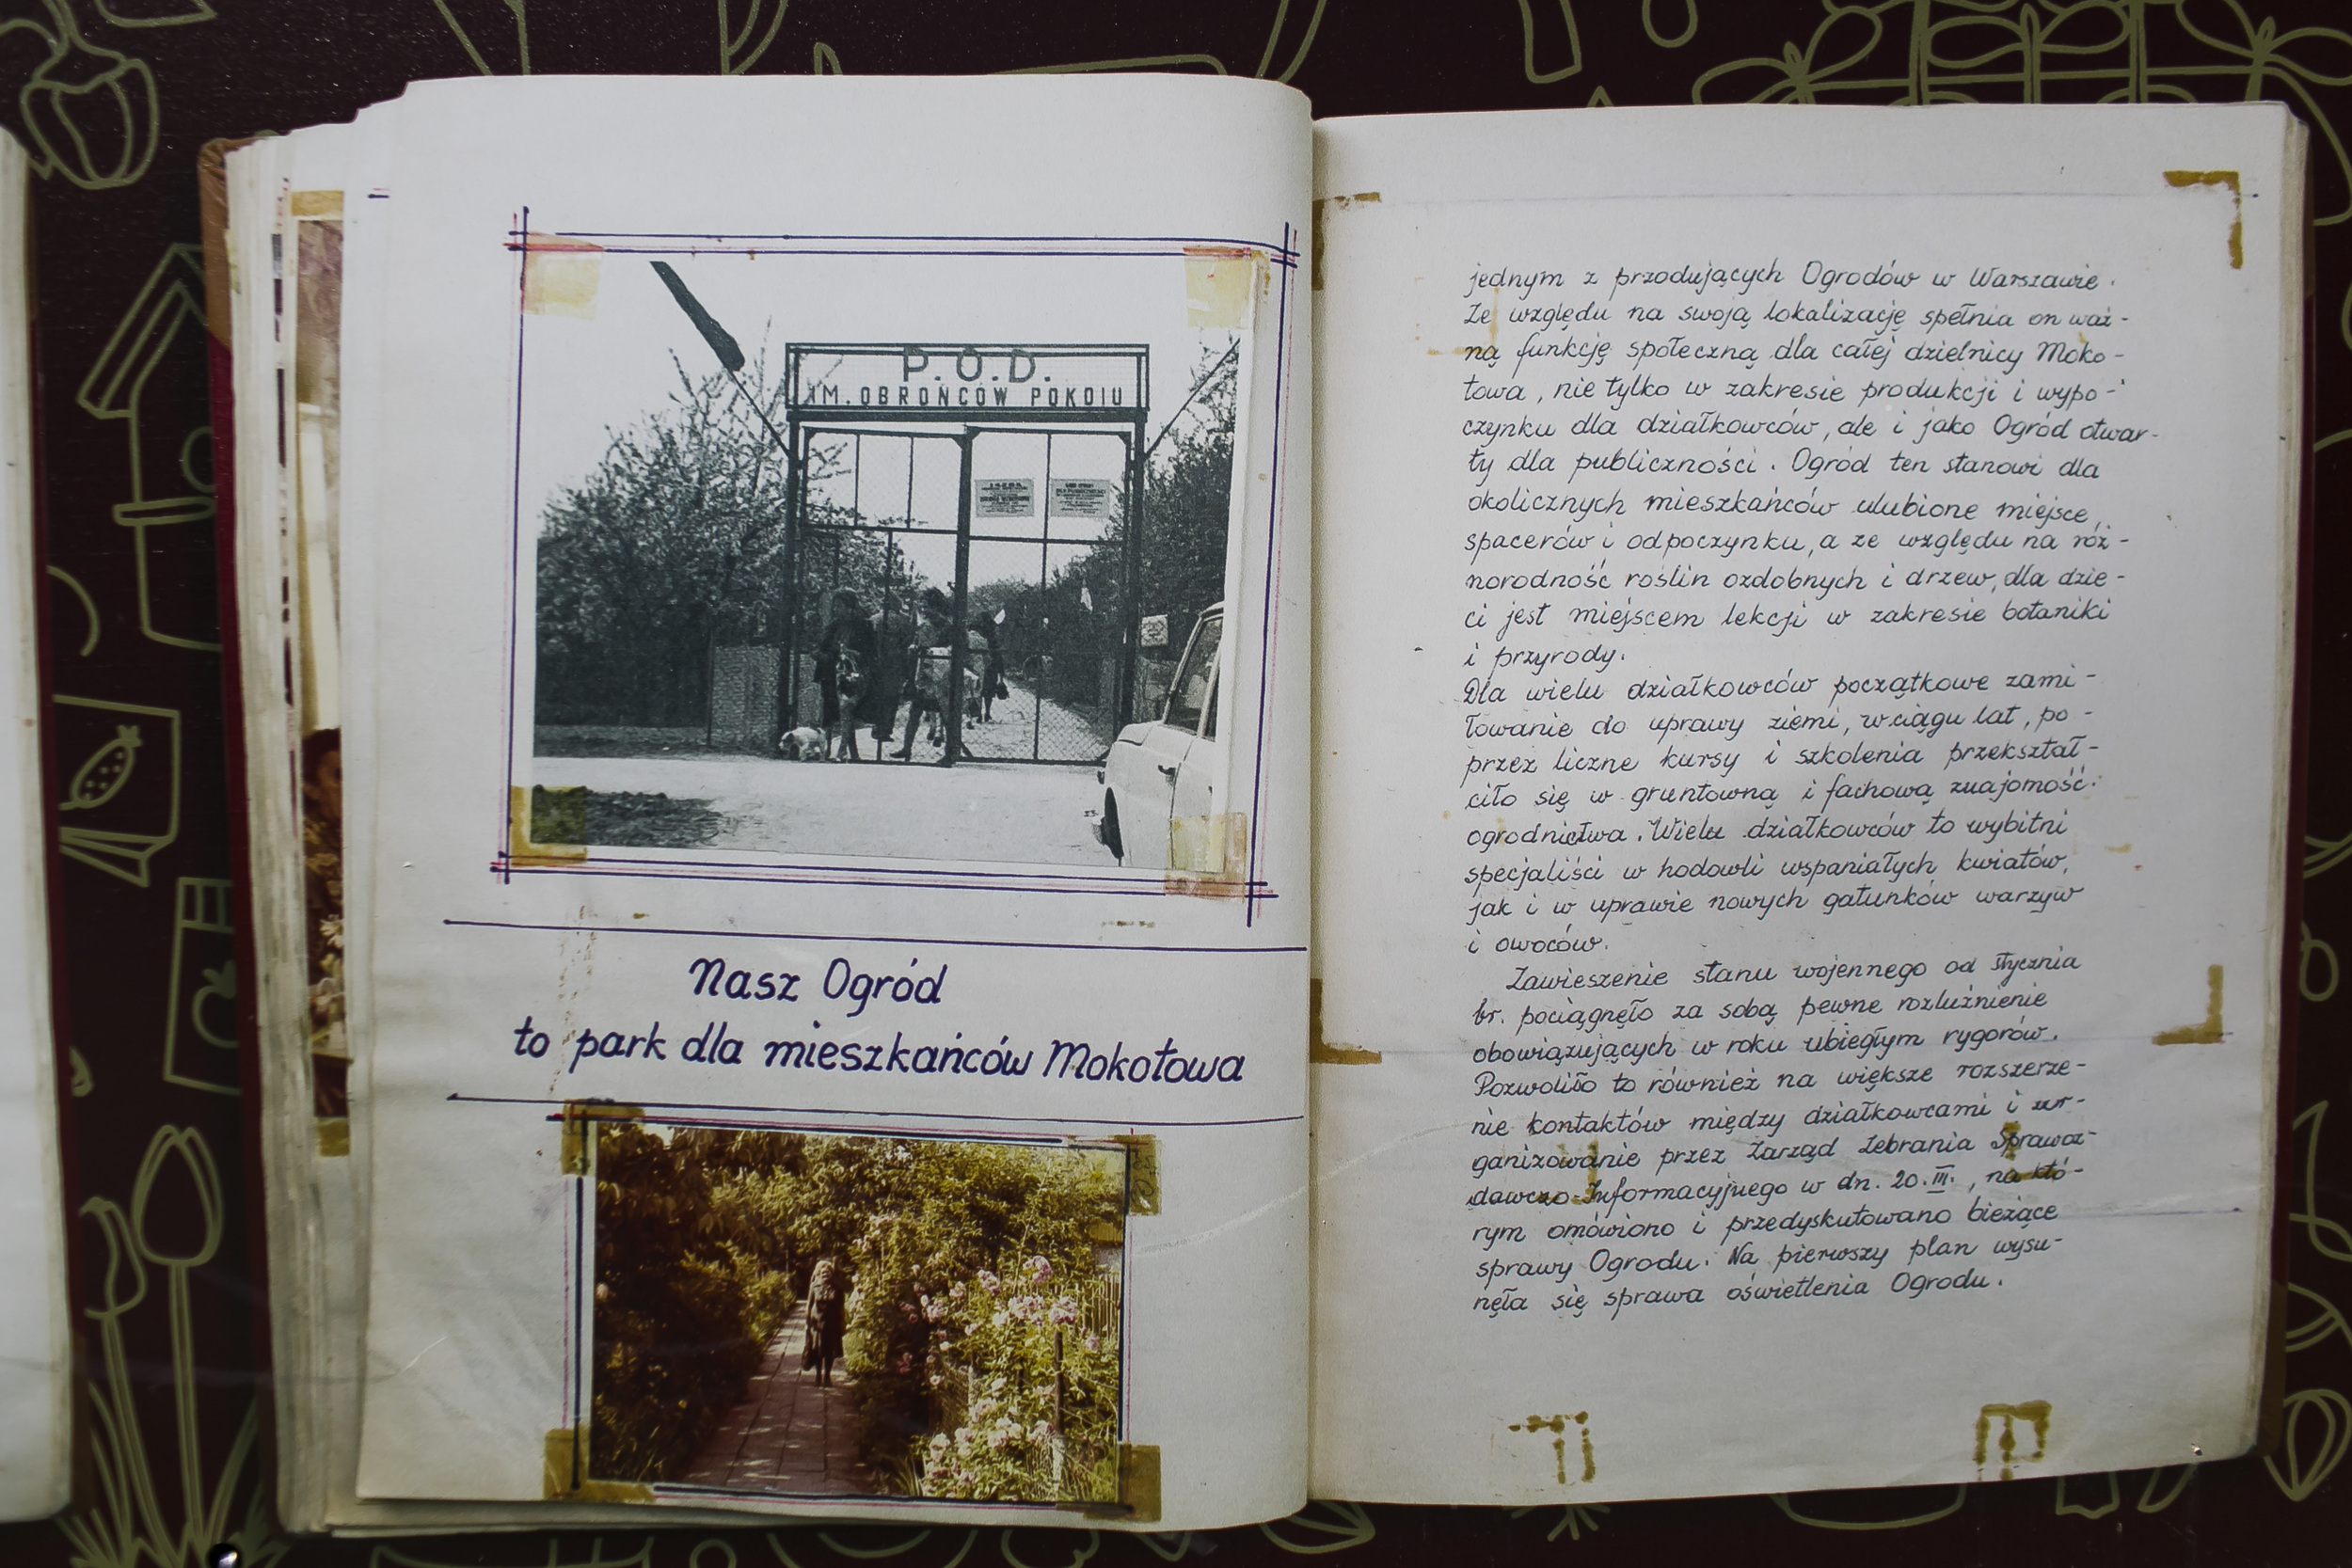 P.O.D.
IM. OBROŃCÓW POKOIU
Nasz Ogród
to park dla mieszkańców Mokotowa
jednym z przodujących Ogrodów w Warszawie.
Ze względu na swoją lokalizację spełnia on waż-
ną funkcję społeczną dla całej dzielnicy Moko-
towa, nie tylko w zakresie produkcji i wypo-
czynku dla działkowców, ale i jako Ogród otwar-
ty dla publiczności. Ogród ten stanowi dla
okolicznych mieszkańców ulubione miejsce
spacerów i odpoczynku, a ze względu na róż-
norodność roślin ozdobnych i drzew, dla dzie-
ci jest miejscem lekcji w zakresie botaniki
i przyrody.
Dla wielu działkowców początkowe zami-
łowanie do uprawy ziemi, w ciągu lat, po-
przez liczne kursy i szkolenia przekształ-
ciło się w gruntowną i fachową znajomość
ogrodnictwa. Wielu działkowców to wybitni
specjaliści w hodowli wspaniałych kwiatów,
jak i w uprawie nowych gatunków warzyw
i owoców.
Zawieszenie stanu wojennego od stycznia
br. pociągnęło za sobą pewne rozluźnienie
obowiązujących w roku ubiegłym rygorów.
Pozwoliło to również na większe rozszerze-
nie kontaktów między działkowcami i zor-
ganizowanie przez Zarząd Zebrania Sprawoz-
dawczo-Informacyjnego w dn. 20.III., na któ-
rym omówiono i przedyskutowano bieżące
sprawy Ogrodu. Na pierwszy plan wysu-
nęła się sprawa oświetlenia Ogrodu.